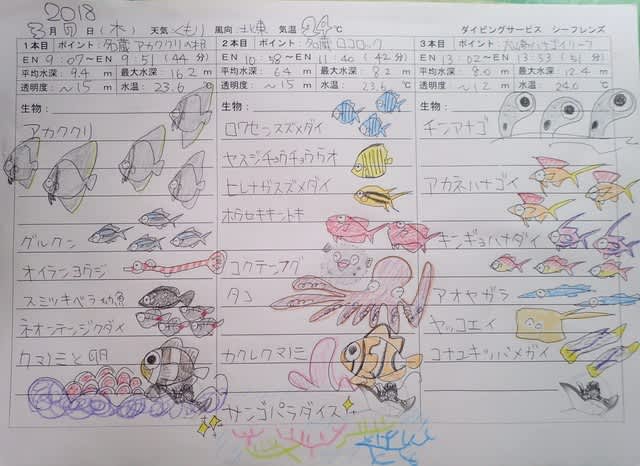 2018
3月 日(木) 天気 くもり 風向 北東 気温 24℃ ダイビングサービス シーフレンズ
1本目 ポイント: 名蔵アカククリの根
EN 9:07～EN 9:51 (44分)
平均水深: 9.4 m 最大水深: 16.2 m
透明度: ～15 m 水温: 23.6 ℃
生物:
アカククリ
グルクン
オイランヨウジ
スミツキベラ幼魚
ネオンテンジクダイ
クマノミと卵
2本目 ポイント: 名蔵ロコロック
EN 10:58～EN 11:40 (42分)
平均水深: 6.4 m 最大水深: 8.2 m
透明度: ～15 m 水温: 23.6 ℃
生物:
ロクセンスズメダイ
ヤスジチョウチョウウオ
ヒレナガスズメダイ
ホウセキキントキ
コクテンフグ
タコ
カクレクマノミ
サンゴパラダイス
3本目 ポイント:
EN 13:02～EN 13:53 (51分)
平均水深: 8.0 m 最大水深: 12.4 m
透明度: ～12 m 水温: 24.0 ℃
生物:
チンアナゴ
アカネハナゴイ
キンギョハナダイ
アオヤガラ
ヤッコエイ
コナユキツバメガイ